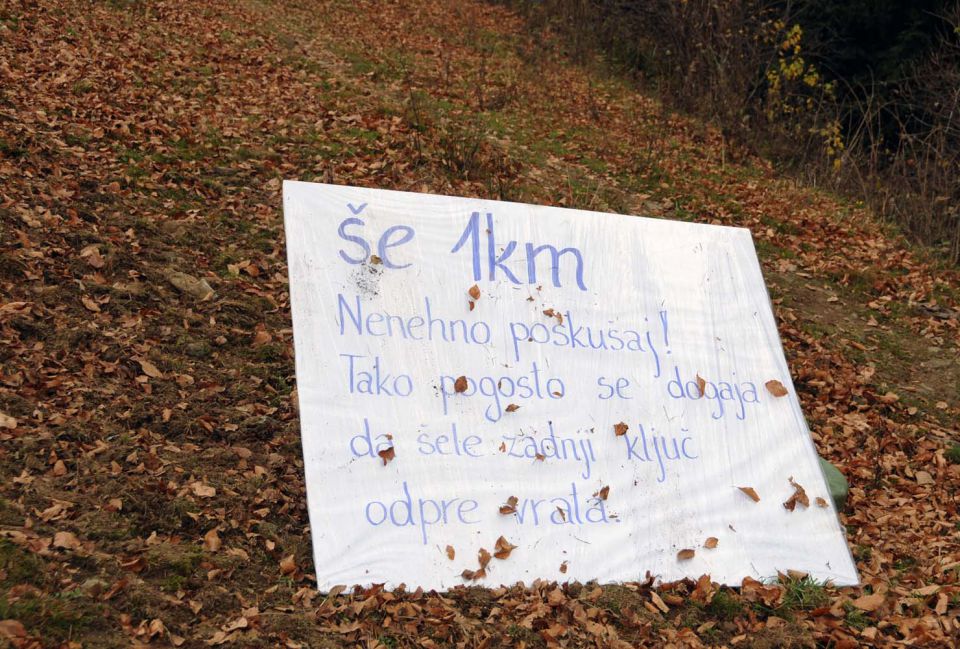 še 1km
Nenehno poskušaj!
Tako pogosto se dogaja
da šele zadnji ključ
odpre vrata.